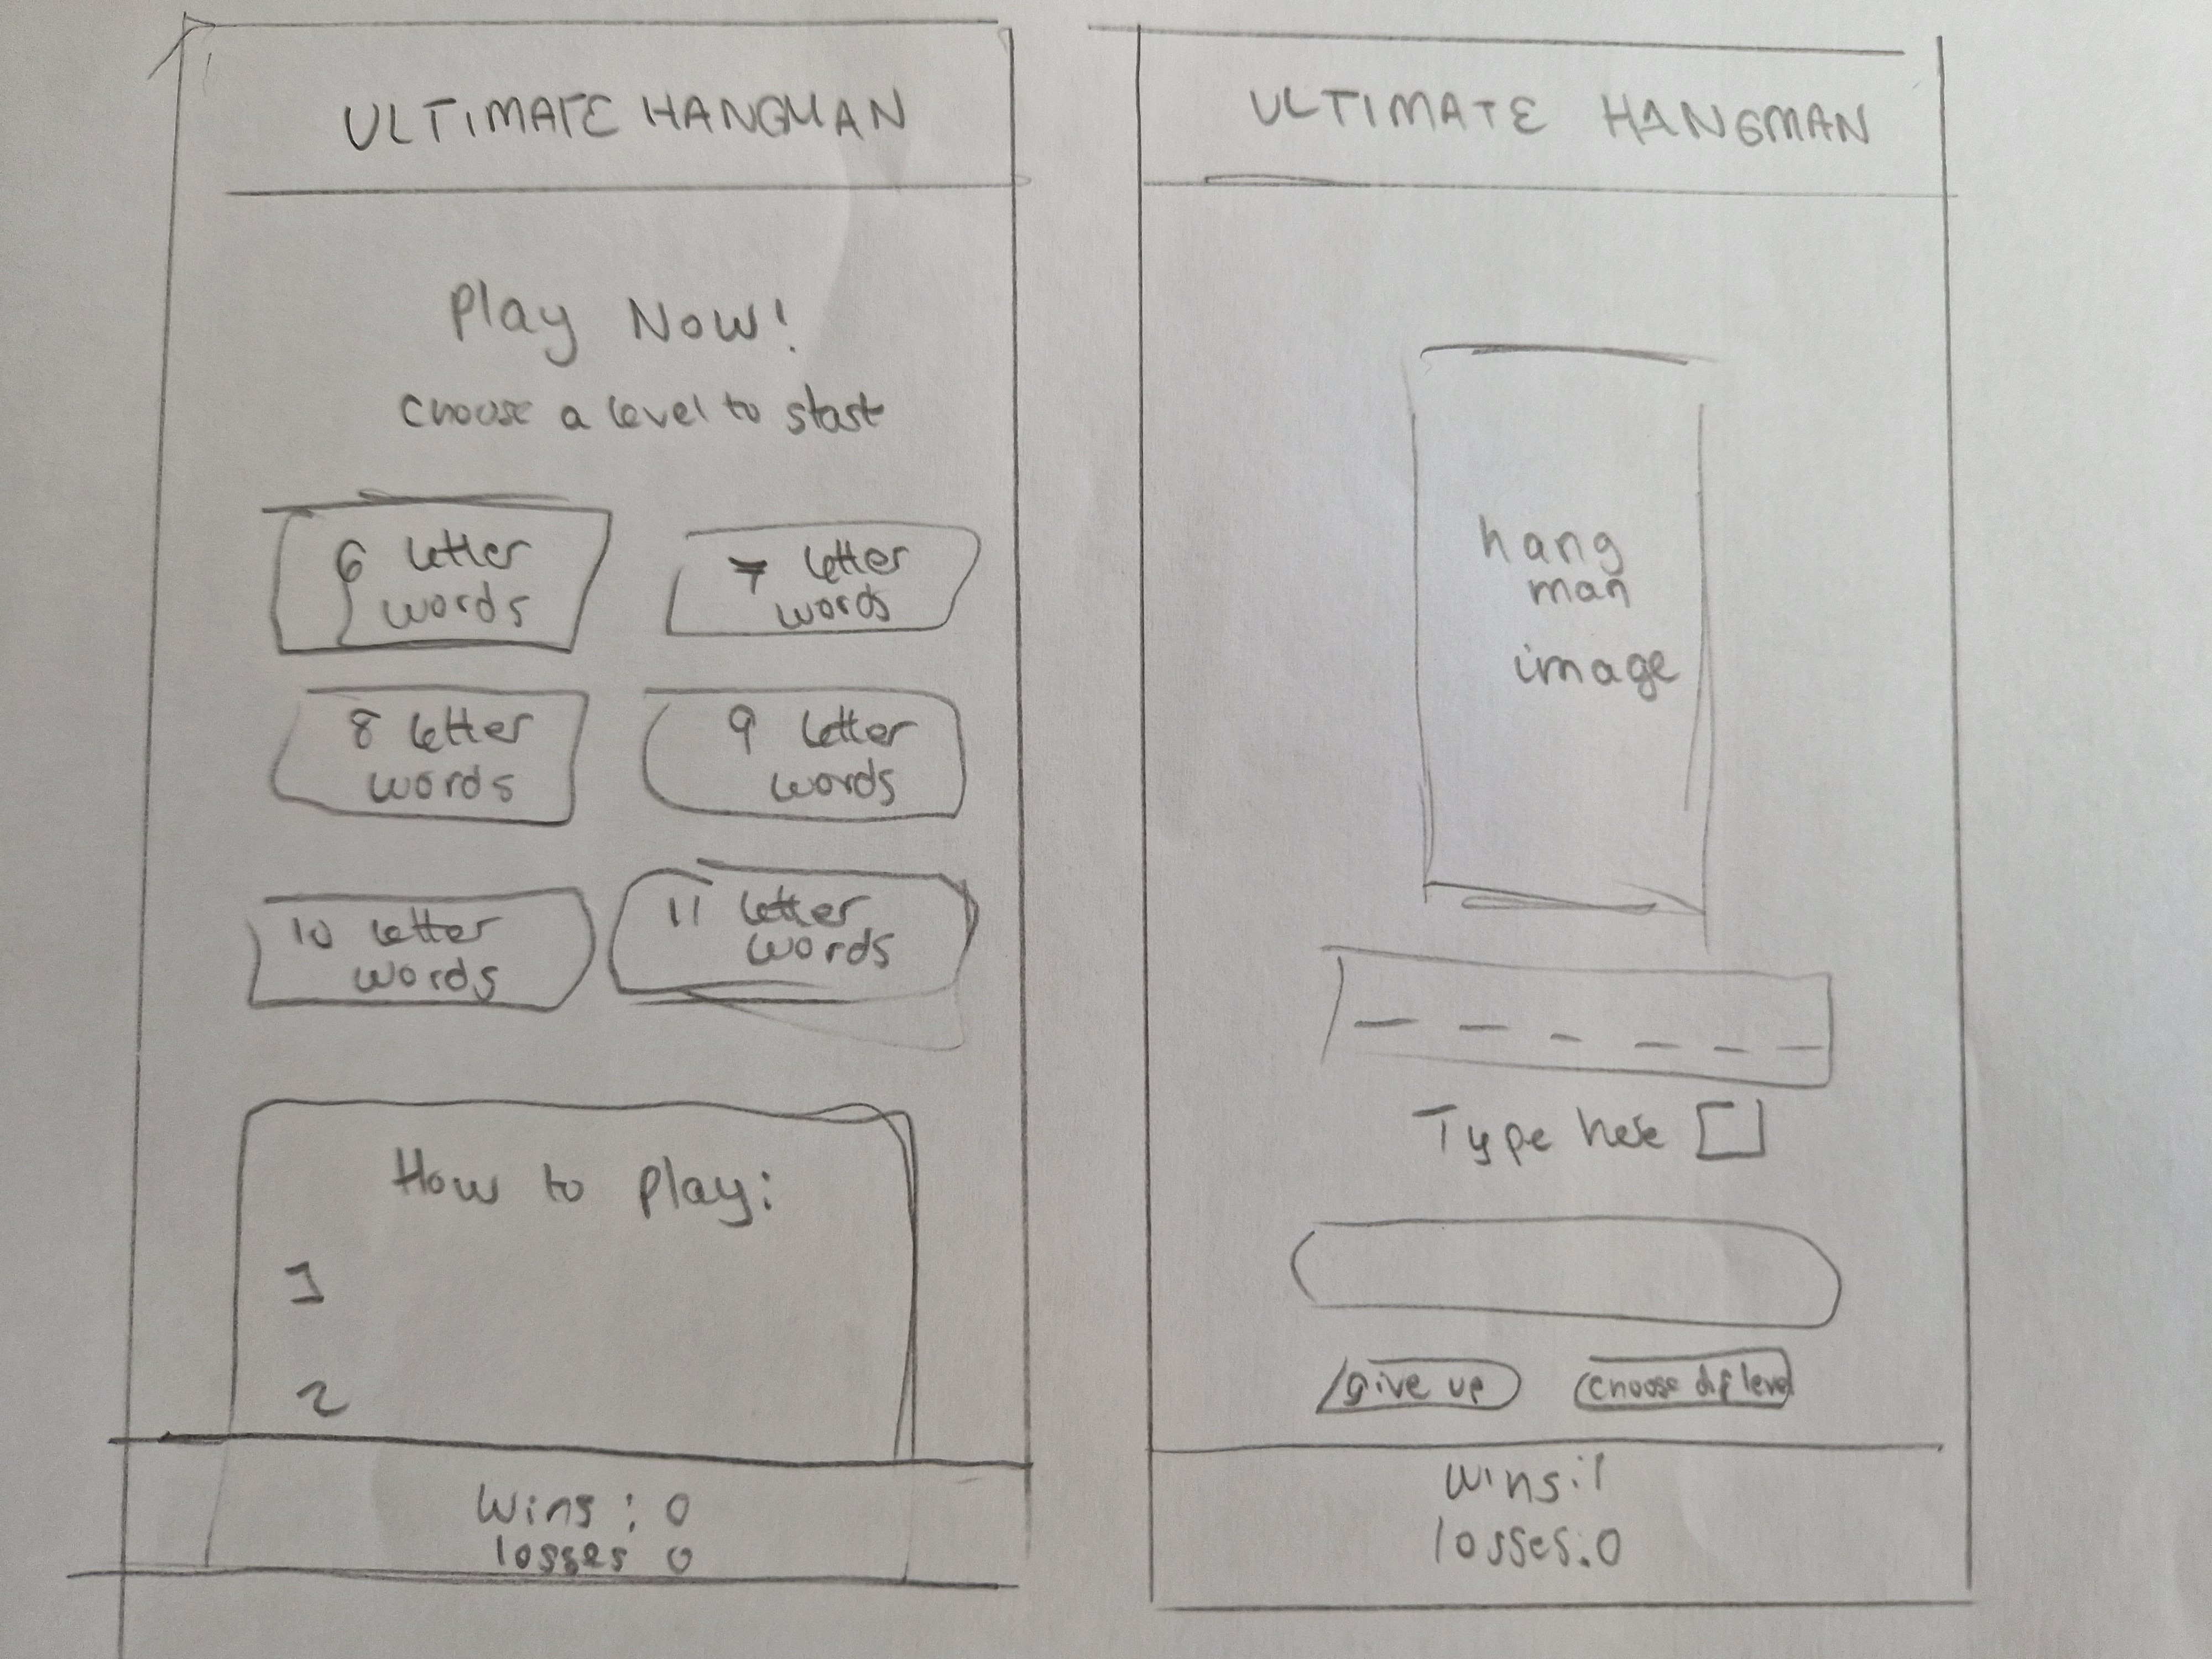 ULTIMATE HANGMAN
Play Now!
choose a level to start
6 letter
words
7 letter
words
8 letter
words
9 letter
words
10 letter
words
11 letter
words
How to play:
1
2
Wins: 0
losses 0
ULTIMATE HANGMAN
hang
man
image
Type here
give up
choose dif level
wins:1
losses:0